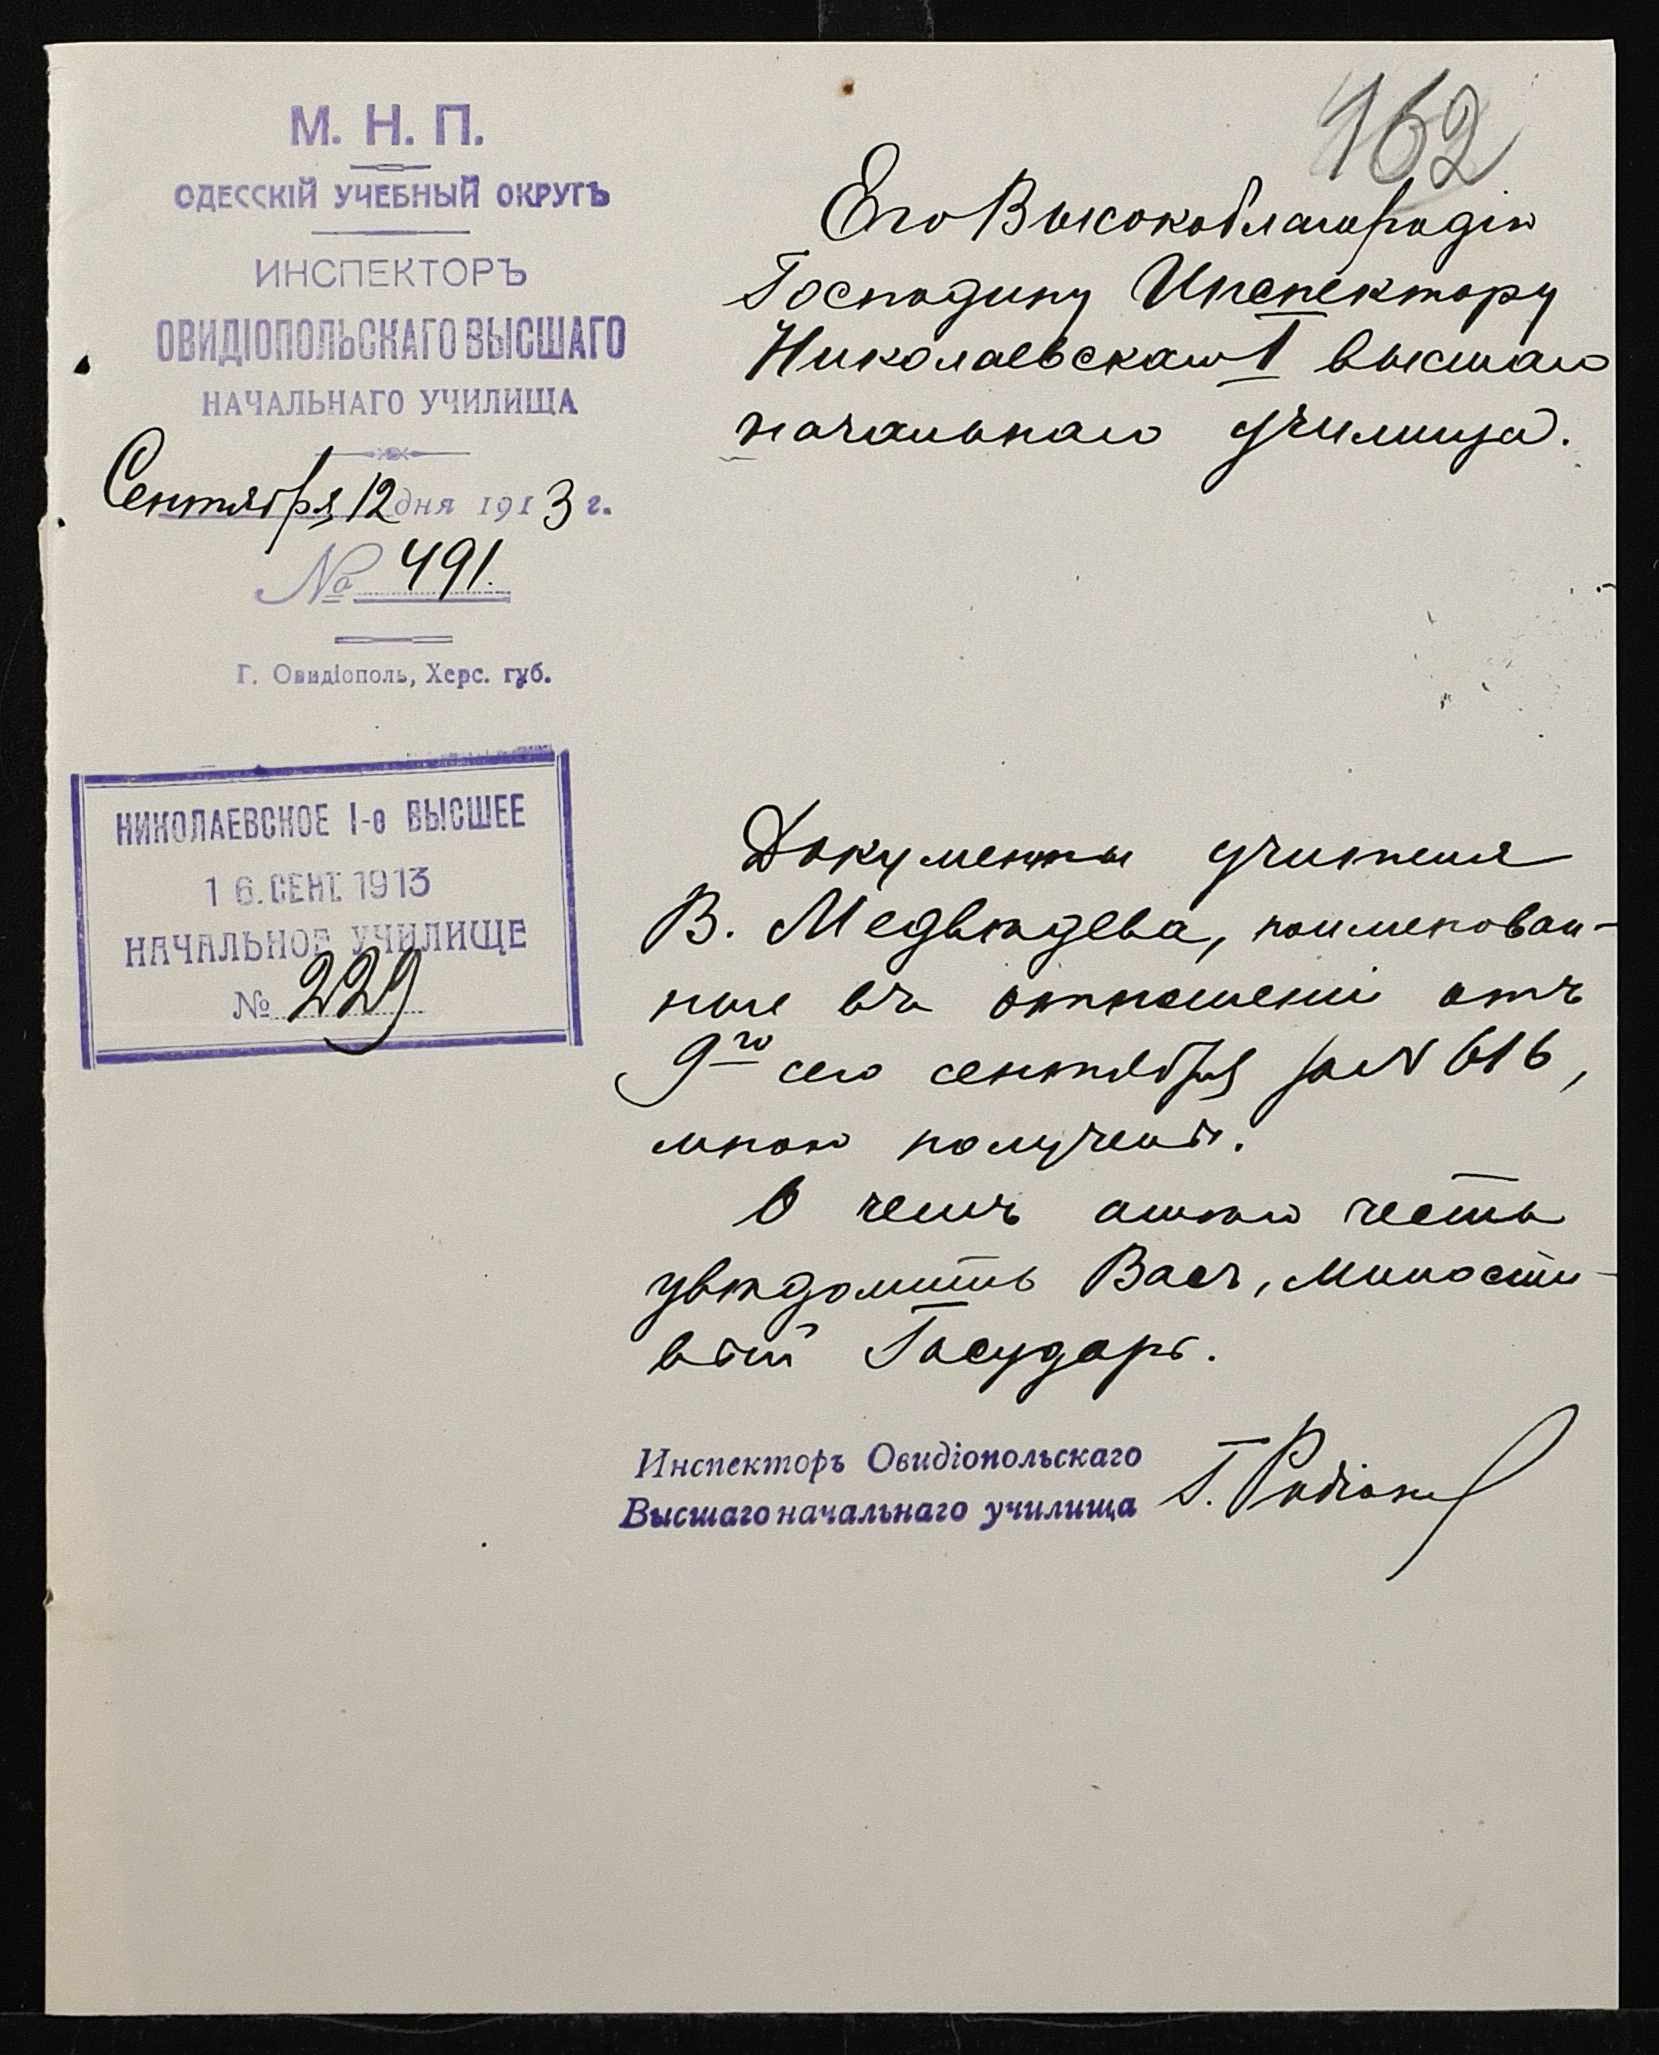 162
М. Н. П.
ОДЕССКІЙ УЧЕБНЫЙ ОКРУГЪ
ИНСПЕКТОРЪ
ОВИДІОПОЛЬСКАГО ВЫСШАГО
НАЧАЛЬНАГО УЧИЛИЩА
Сентября 12 дня 1913 г.
№ 491.
Г. Овидіополь, Херс. губ.
НИКОЛАЕВСКОЕ I-е ВЫСШЕЕ
16. СЕНТ. 1913
НАЧАЛЬНОЕ УЧИЛИЩЕ
№ 229
Его Высокоблагородію
Господину Инспектору
Николаевскаго I высшаго
начальнаго училища.
Документы учителя
В. Медвѣдева, поименован-
ные въ отношеніи отъ
9го сего сентября за № 616,
мною получены.
О чемъ имѣю честь
увѣдомить Васъ, Милости-
вый Государь.
Инспекторъ Овидіопольскаго
Высшаго начальнаго училища